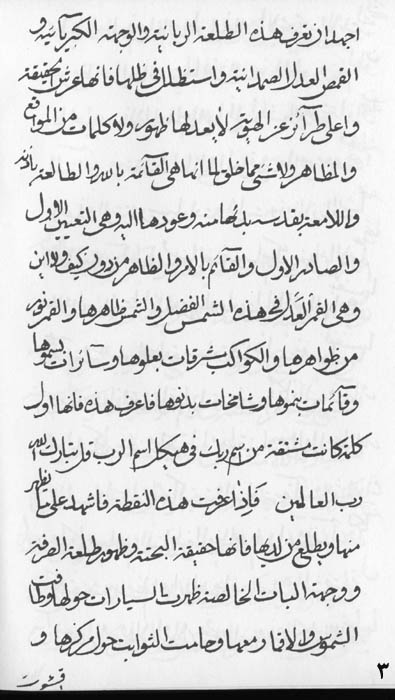 اجهد ان تعرف هذه الطلعة الربانية والوجهة الكبريائية و
القمص العدل الصمدانية واستظلل في ظلها فانها عرش الحقيقة
واعلى طرائز عز الهوية لا يعدلها ظهور ولا كلمات من المواقع
والمظاهر ولا شيء مما خلق لما انها هي القائمة بالله والطالعة باذنه
واللامعة بقدسه بدئها منه وعودها اليه وهي التعين الاول
والصادر الاول والقائم بالامر والظاهر من دون كيف ولا اين
وهي القمر العدل في هذه الشمس الفضل والشمس ظاهرها والقمر نور
من ظواهرها والكواكب مشرقات بعلوها وسائرات بسموها
وقائمات بنموها وشامخات بدفوها فاعرف هذه فانها اول
كلمة كانت مشتقة من اسم ربك في هيكل اسم الرب قل تبارك الله
رب العالمين فاذا عرفت هذه النقطة فاشهد على ما يظهر
منها ويطلع من لديها فانها حقيقة البحتة وظهور طلعة الصرفة
ووجهة البات الخالصة ظهرت السيارات حولها وطافت
الشموس والاقمار معها وحامت الثوابت حول مركزها و
٣